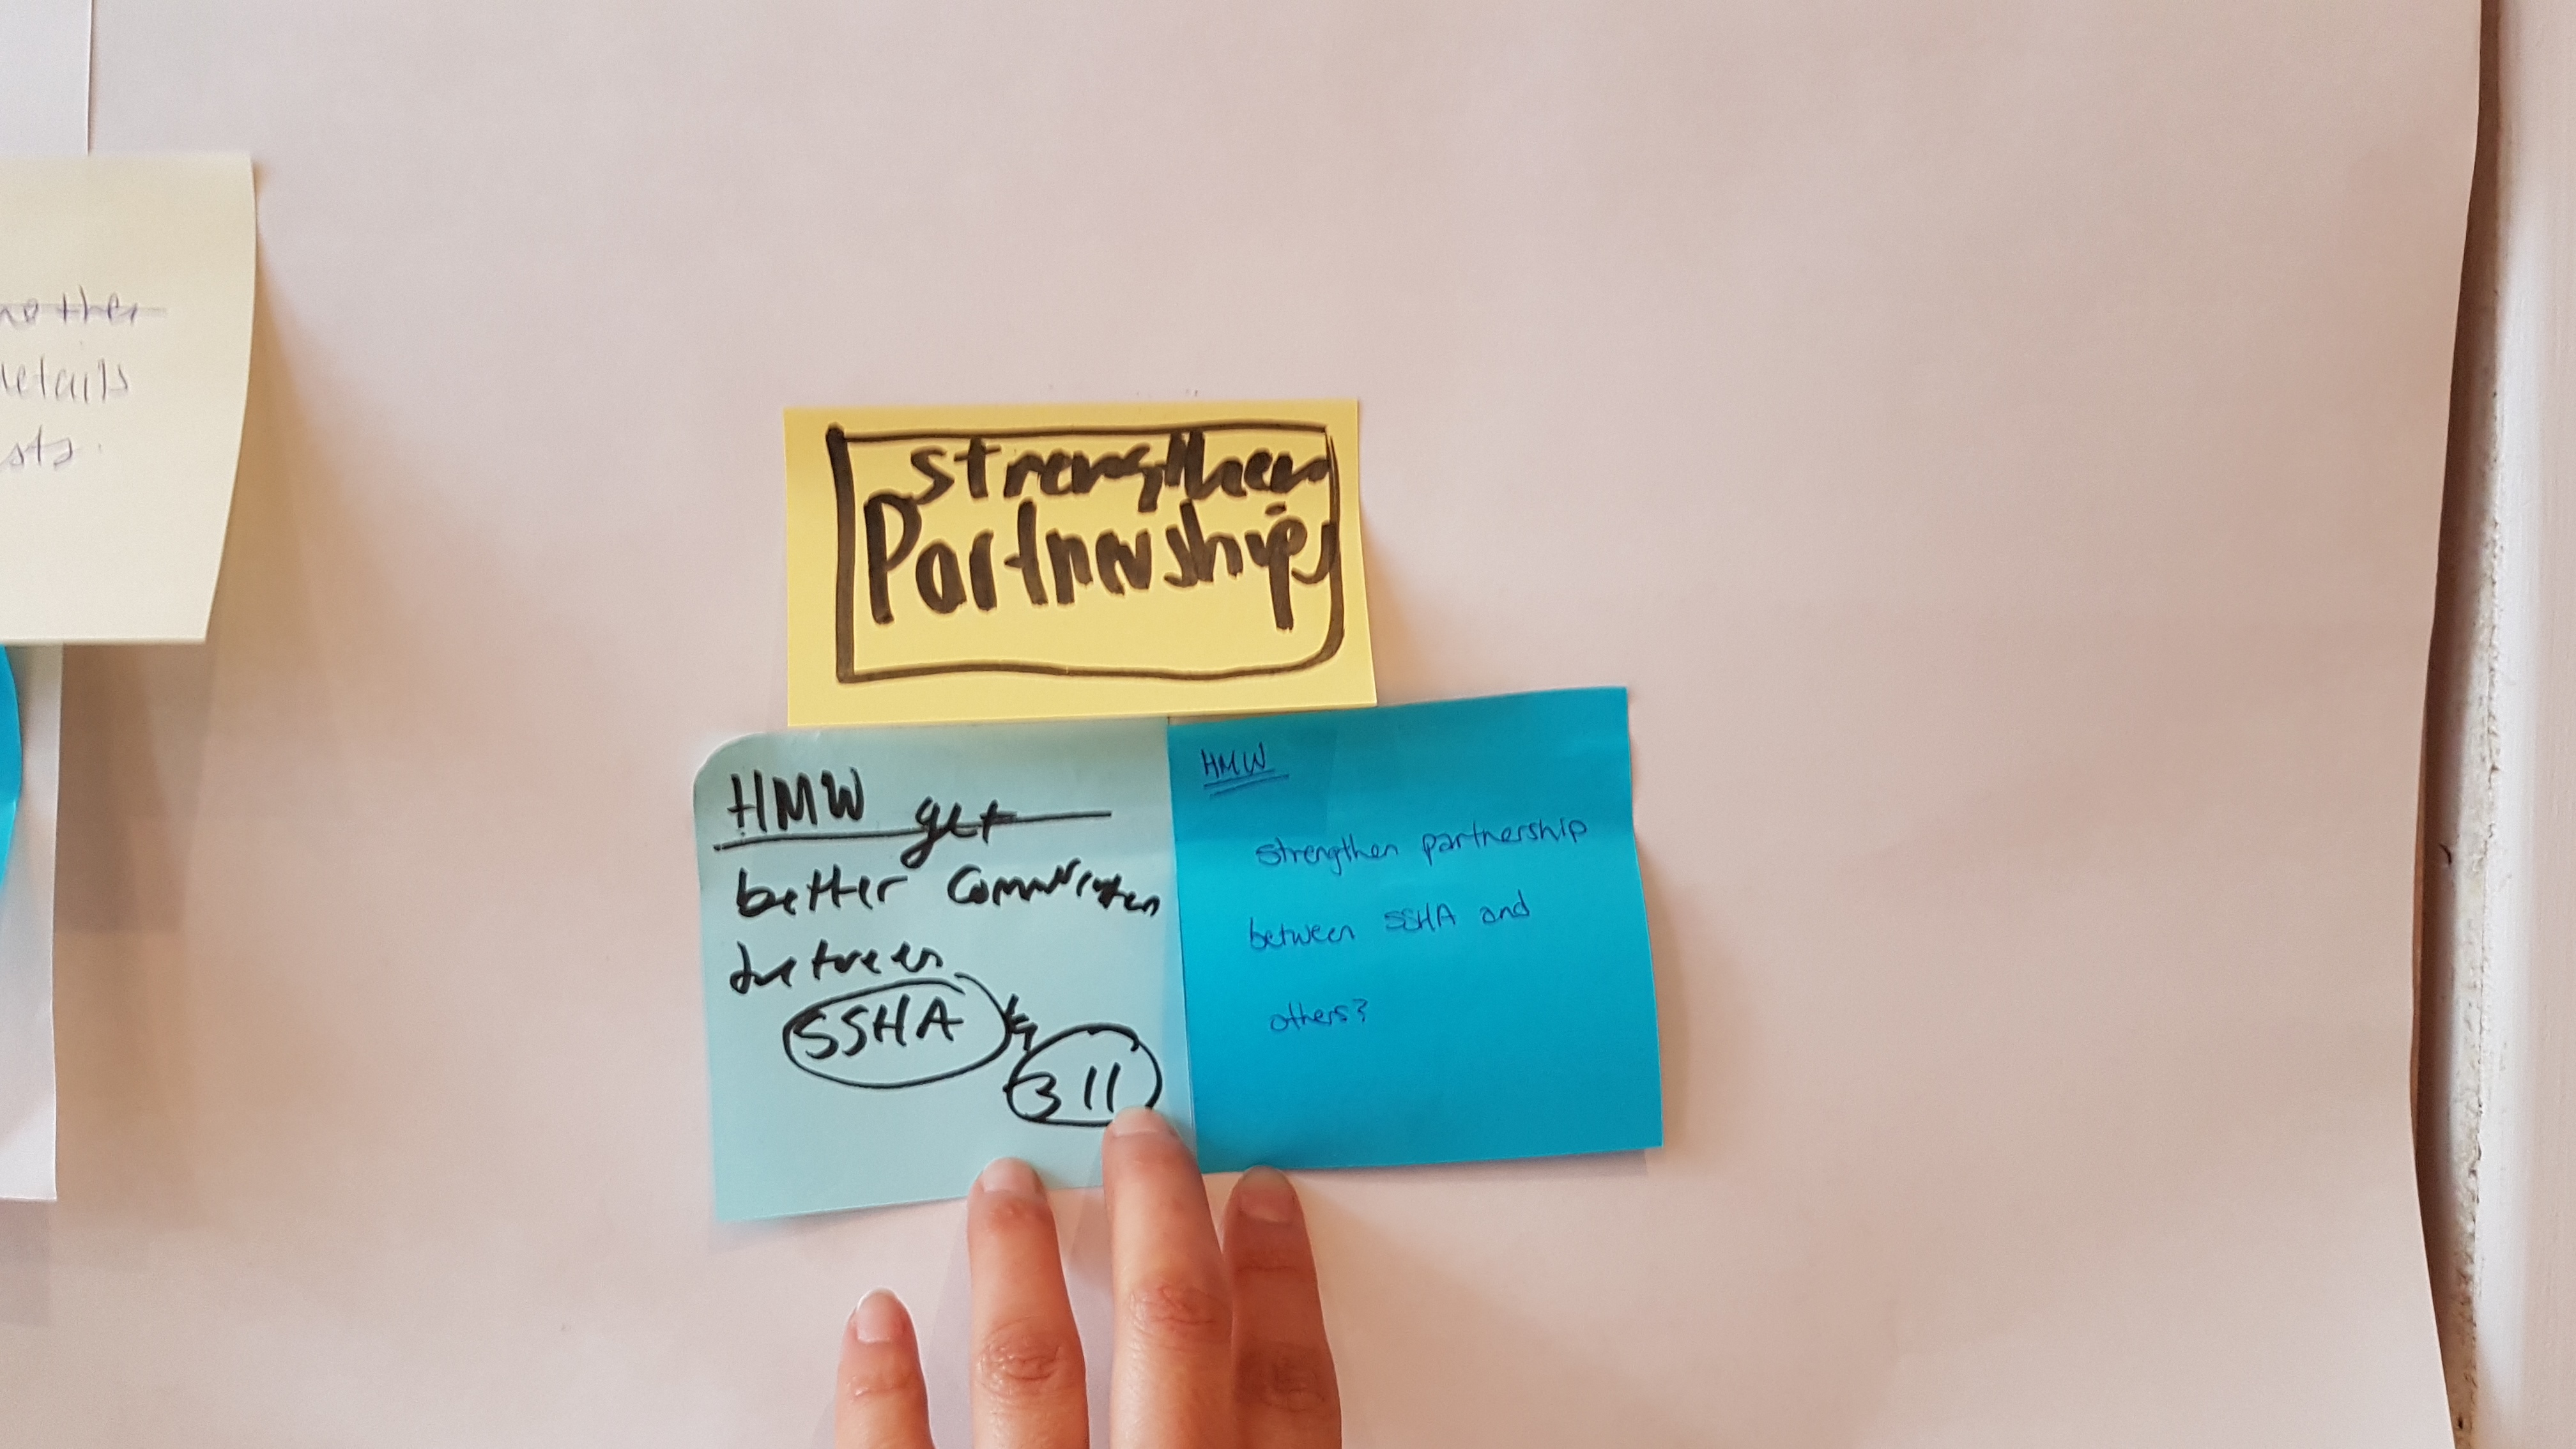 other
details
sts.
Strengthen
Partnerships
HMW get
better Communication
between
SSHA &
311
HMW
strengthen partnership
between SSHA and
others?